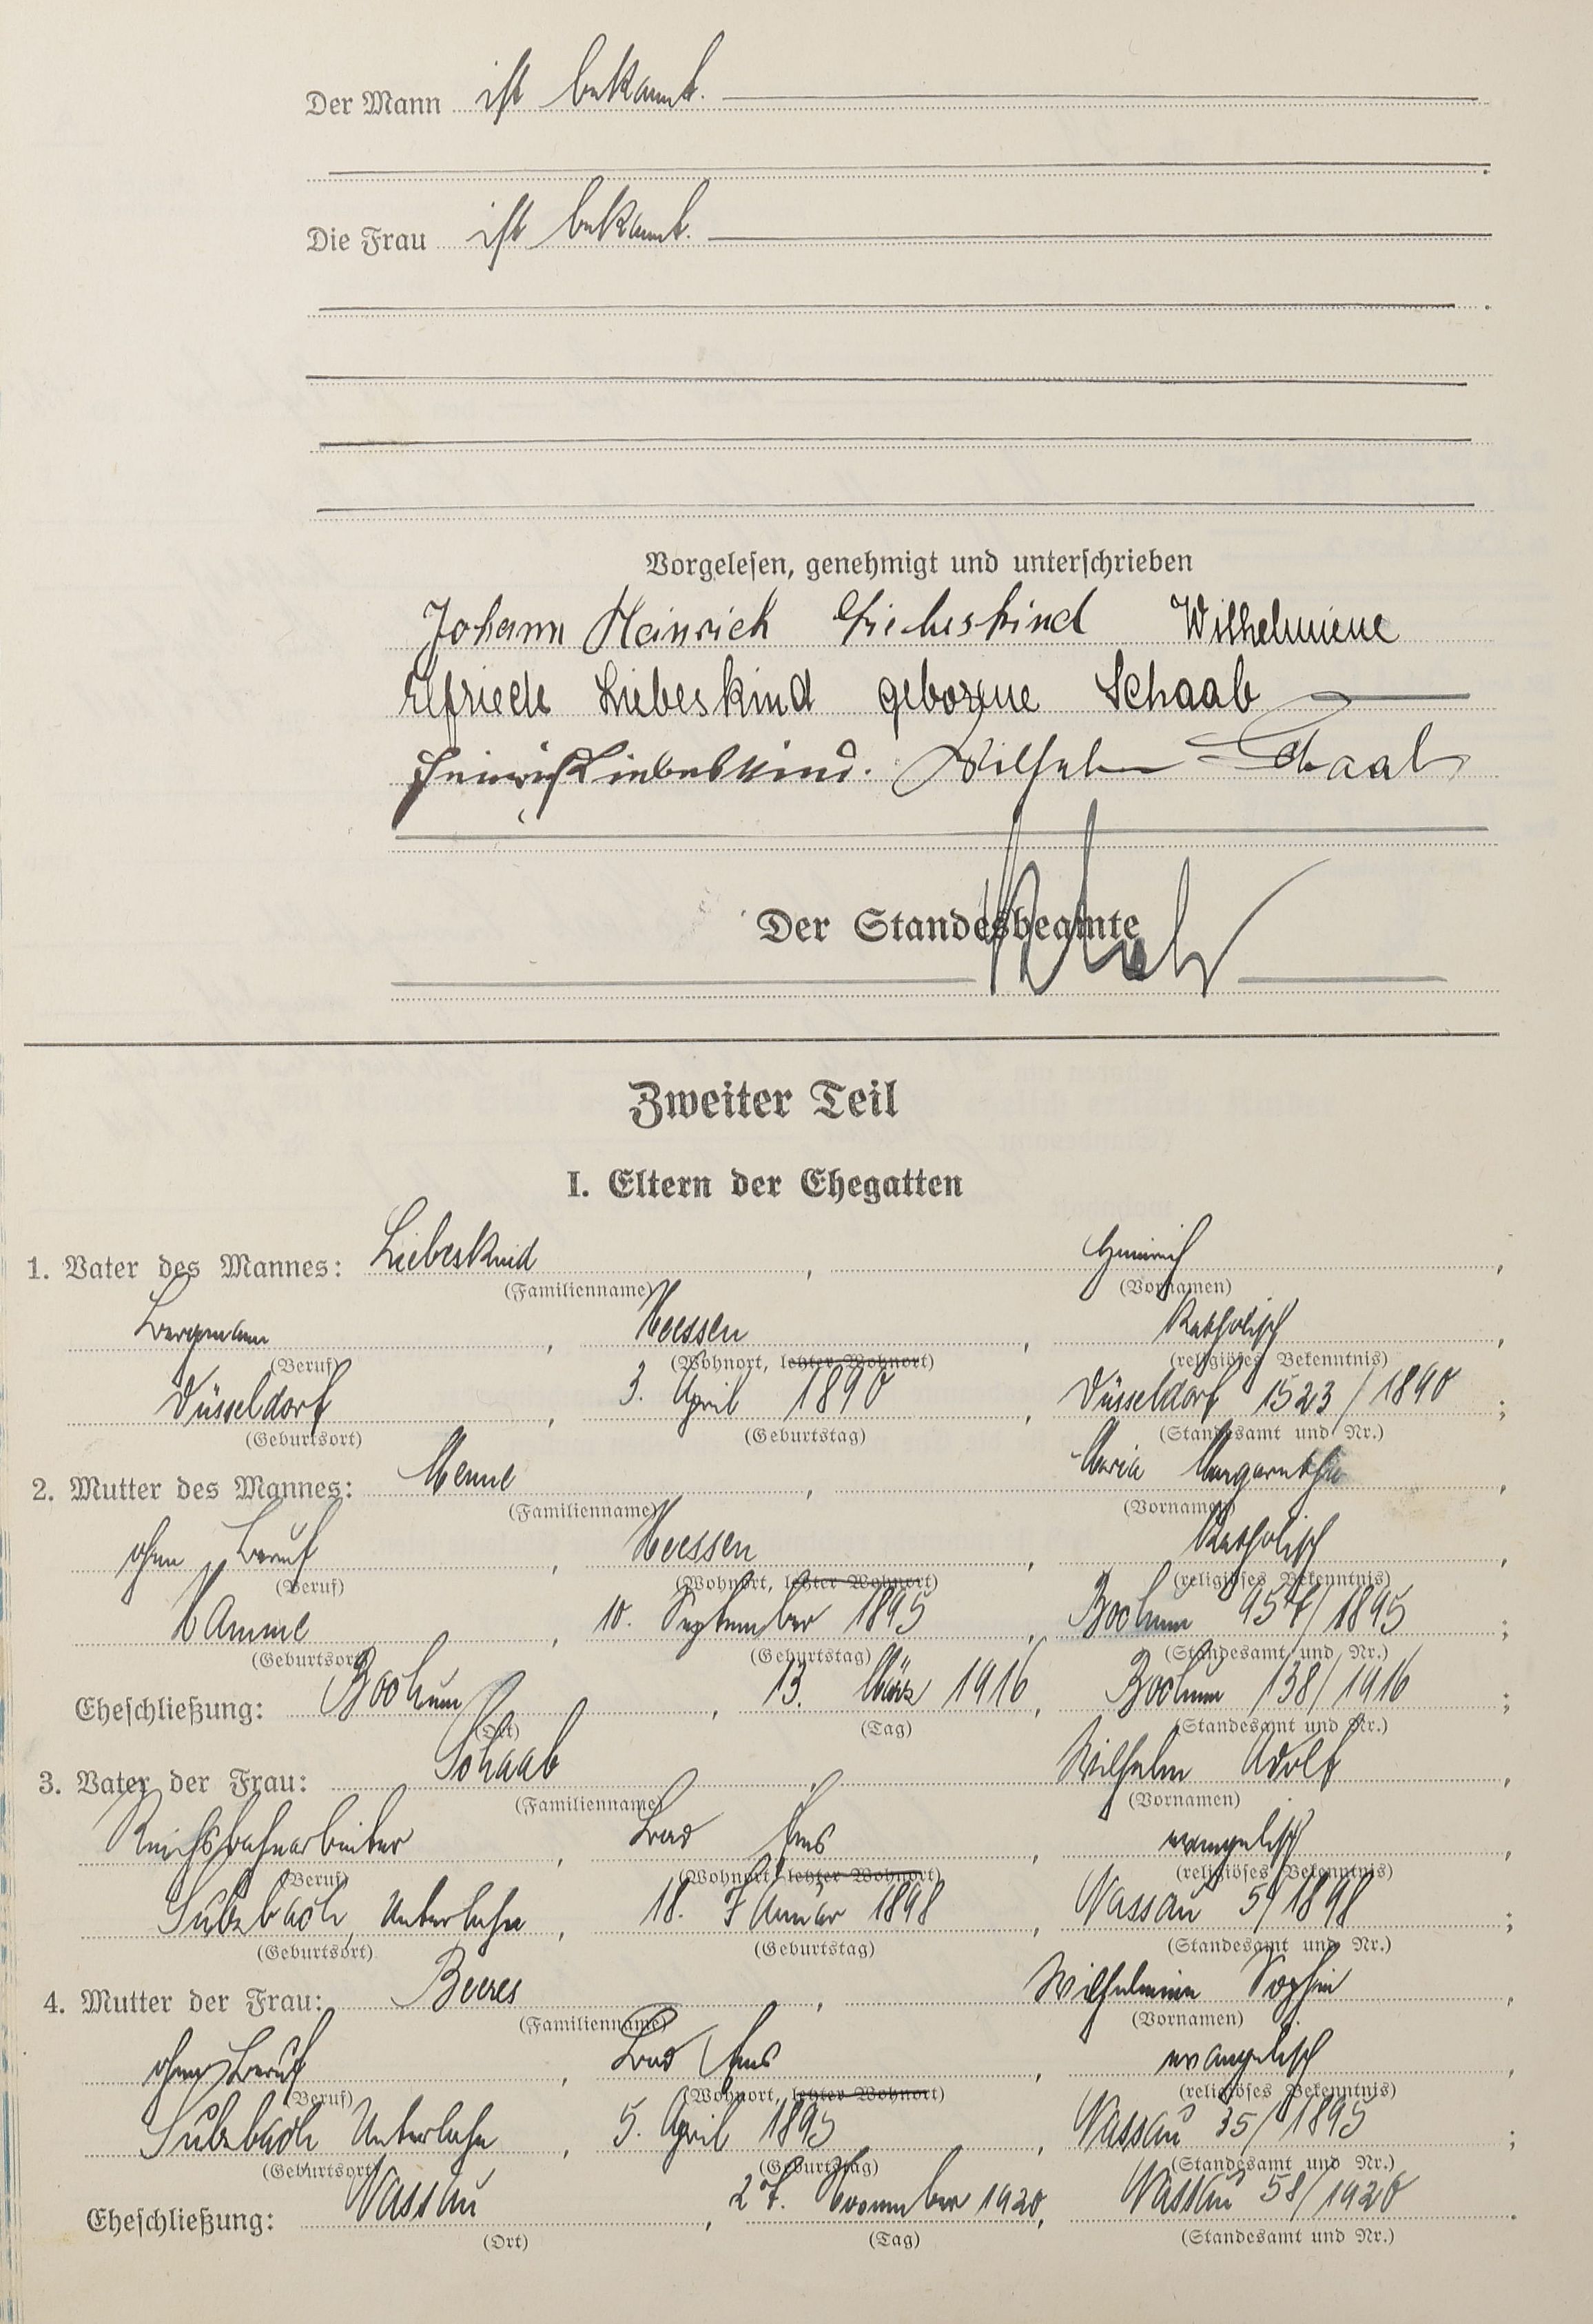 Der Mann ist bekannt.
Die Frau ist bekannt.
Vorgelesen, genehmigt und unterschrieben
Johann Heinrich Liebeskind Wilhelmiene
Elfriede Liebeskind geborene Schaab
Heinrich Liebeskind. Wilhelm Schaab
Der Standesbeamte
Zweiter Teil
I. Eltern der Ehegatten
1. Vater des Mannes: Liebeskind, Heinrich,
(Familienname) (Vornamen)
Bergmann, Heessen, Katholisch,
(Beruf) (Wohnort, letzter Wohnort) (religiöses Bekenntnis)
Düsseldorf, 3. April 1890, Düsseldorf 1523/1890;
(Geburtsort) (Geburtstag) (Standesamt und Nr.)
2. Mutter des Mannes: Menne, Maria Margaretha,
(Familienname) (Vornamen)
ohne Beruf, Heessen, Katholisch,
(Beruf) (Wohnort, letzter Wohnort) (religiöses Bekenntnis)
Hamme, 10. September 1895, Bochum 957/1895;
(Geburtsort) (Geburtstag) (Standesamt und Nr.)
Eheschließung: Bochum, 13. März 1916, Bochum 138/1916;
(Ort) (Tag) (Standesamt und Nr.)
3. Vater der Frau: Schaab, Wilhelm Adolf,
(Familienname) (Vornamen)
Reichsbahnarbeiter, Bad Ems, evangelisch,
(Beruf) (Wohnort, letzter Wohnort) (religiöses Bekenntnis)
Sulzbach, Unterlahn, 18. Januar 1898, Nassau 5/1898;
(Geburtsort) (Geburtstag) (Standesamt und Nr.)
4. Mutter der Frau: Beeres, Wilhelmine Sophie,
(Familienname) (Vornamen)
ohne Beruf, Bad Ems, evangelisch,
(Beruf) (Wohnort, letzter Wohnort) (religiöses Bekenntnis)
Sulzbach Unterlahn, 5. April 1895, Nassau 35/1895;
(Geburtsort) (Geburtstag) (Standesamt und Nr.)
Eheschließung: Nassau, 27. November 1920, Nassau 58/1920.
(Ort) (Tag) (Standesamt und Nr.)